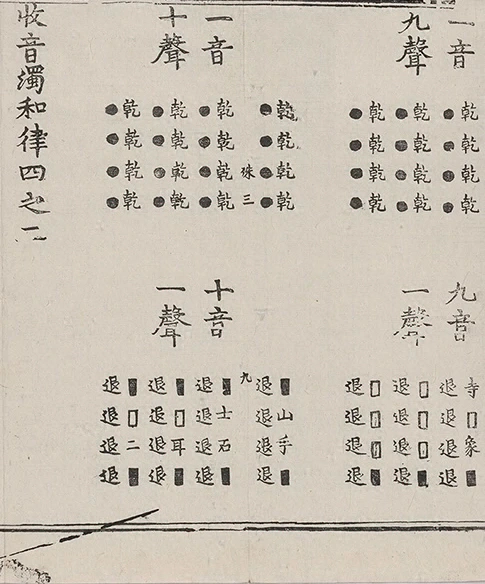 一音
九聲
乾乾乾乾
●●●●
乾乾乾乾
●●●●
乾乾乾乾
●●●●
九音
一聲
寺□象■
退退退退
□□□■
退退退退
□□□■
退退退退
乾乾乾乾
●●●●
■山手■
退退退退
三
九
一音
十聲
乾乾乾乾
●●●●
乾乾乾乾
●●●●
乾乾乾乾
●●●●
十音
一聲
■士石■
退退退退
■□耳■
退退退退
■□二■
退退退退
收音濁和律四之一